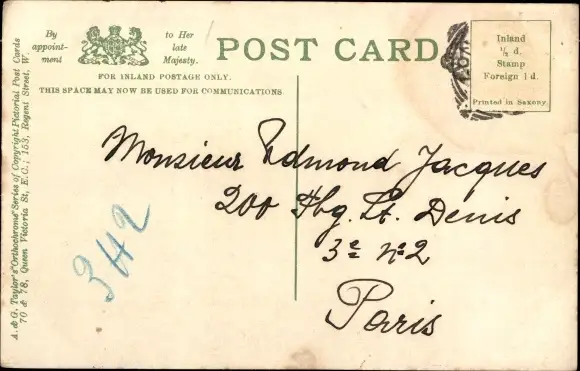 By appoint-ment
to Her late Majesty.
POST CARD
FOR INLAND POSTAGE ONLY.
THIS SPACE MAY NOW BE USED FOR COMMUNICATIONS.
Inland
½ d.
Stamp
Foreign 1d.
Printed in Saxony.
A. & G. Taylor's "Orthochrome" Series of Copyright Pictorial Post Cards
70 & 78, Queen Victoria St, E.C.; 153, Regent Street, W.
Monsieur Edmond Jacques
200 Fbg. St. Denis
3e No 2
Paris
342